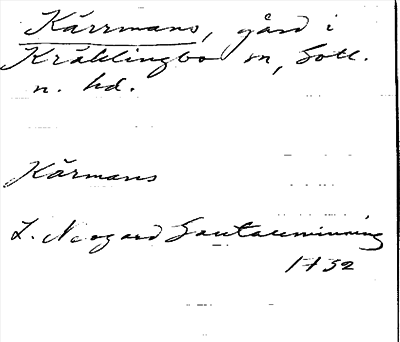 Kärrmans, gård i
Kräklingbo sn, Gotl.
n. hd.
Kärmans
L. Neogard Gautauminning
1732